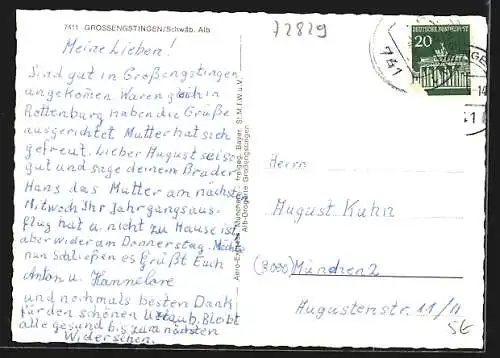 7411 GROSSENGSTINGEN/Schwäb. Alb
72829
Meine Lieben!
Sind gut in Großengstingen
angekommen Waren gleich in
Rottenburg haben die Grüße
ausgerichtet Mutter hat sich
gefreut. Lieber August sei so
gut und sage deinem Bruder
Hans das Mutter am nächste
Mitwoch Ihr Jahrgangsaus-
flug hat u. nicht zu Hause ist
aber wider am Donnerstag. Möchte
nun schließen es Grüßt Euch
Anton u. Hannelore
und nochmals besten Dank
für den schönen Urlaub. Bleibt
alle gesund bis zum nächsten
Widersehen.
Alb-Drogerie Großengstingen
DEUTSCHE BUNDESPOST
20
741
Herrn
August Kuhn
(8000) München 2
Augustenstr. 11/II
SE